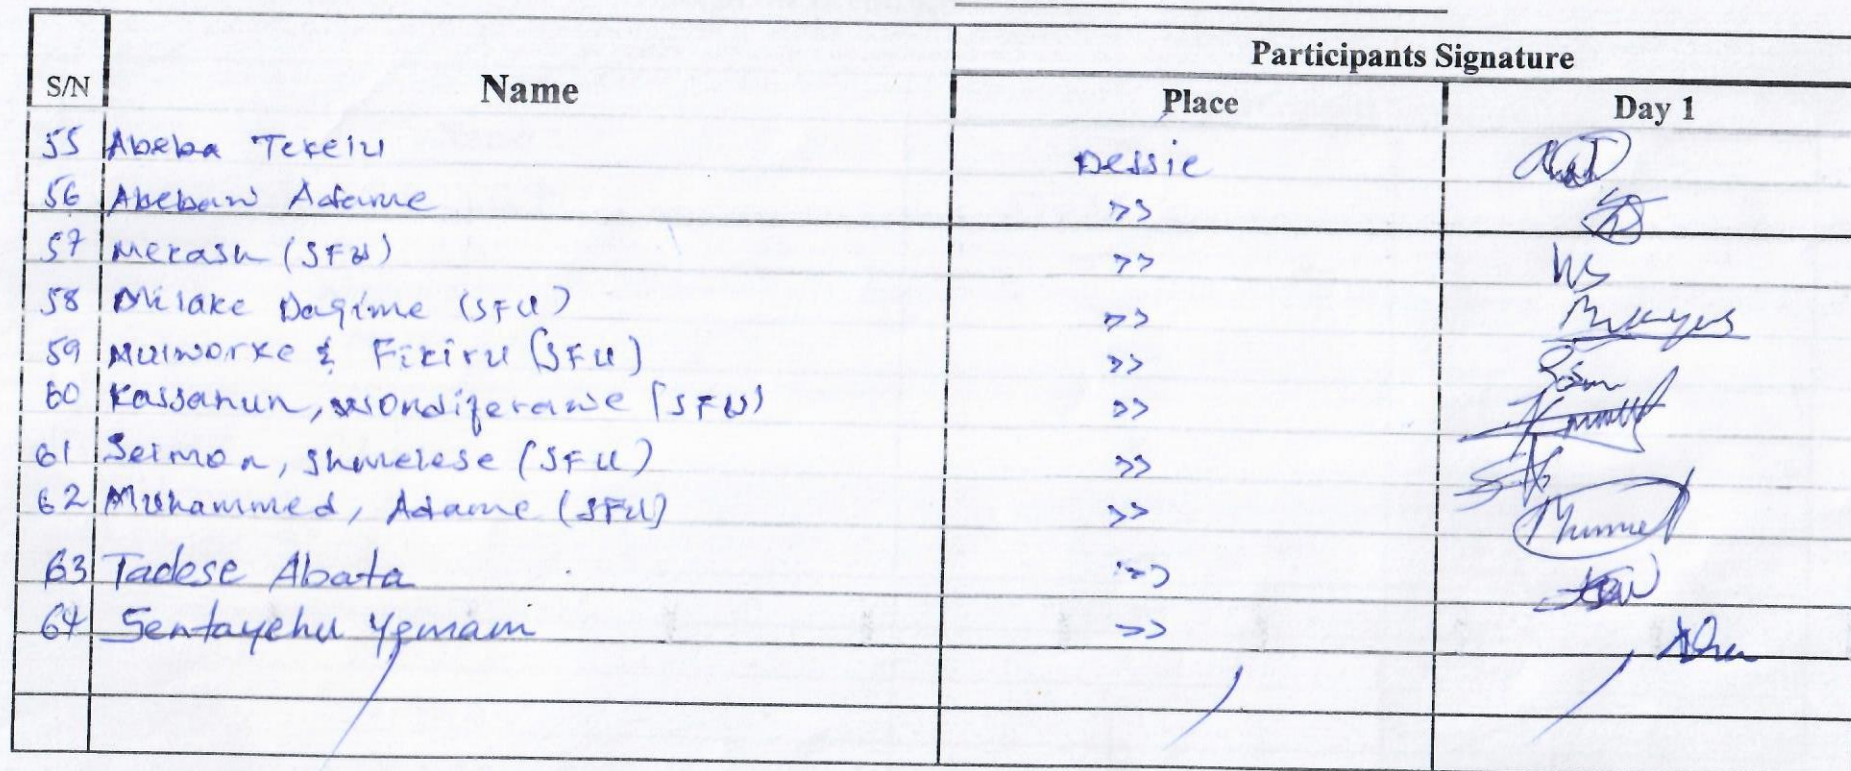 S/N Name Participants Signature
Place Day 1
55 Abeba Tekeiu Dessie
56 Abebaw Adame >>
57 Mekash (SFU) >>
58 Milake Dagime (SFU) >>
59 Mulworke & Fikiru (SFU) >>
60 Kassahun, Wondiferawe (SFU) >>
61 Seimon, Shmelese (SFU) >>
62 Muhammed, Adame (SFU) >>
63 Tadese Abata >>
64 Sentayehu Yemam >>